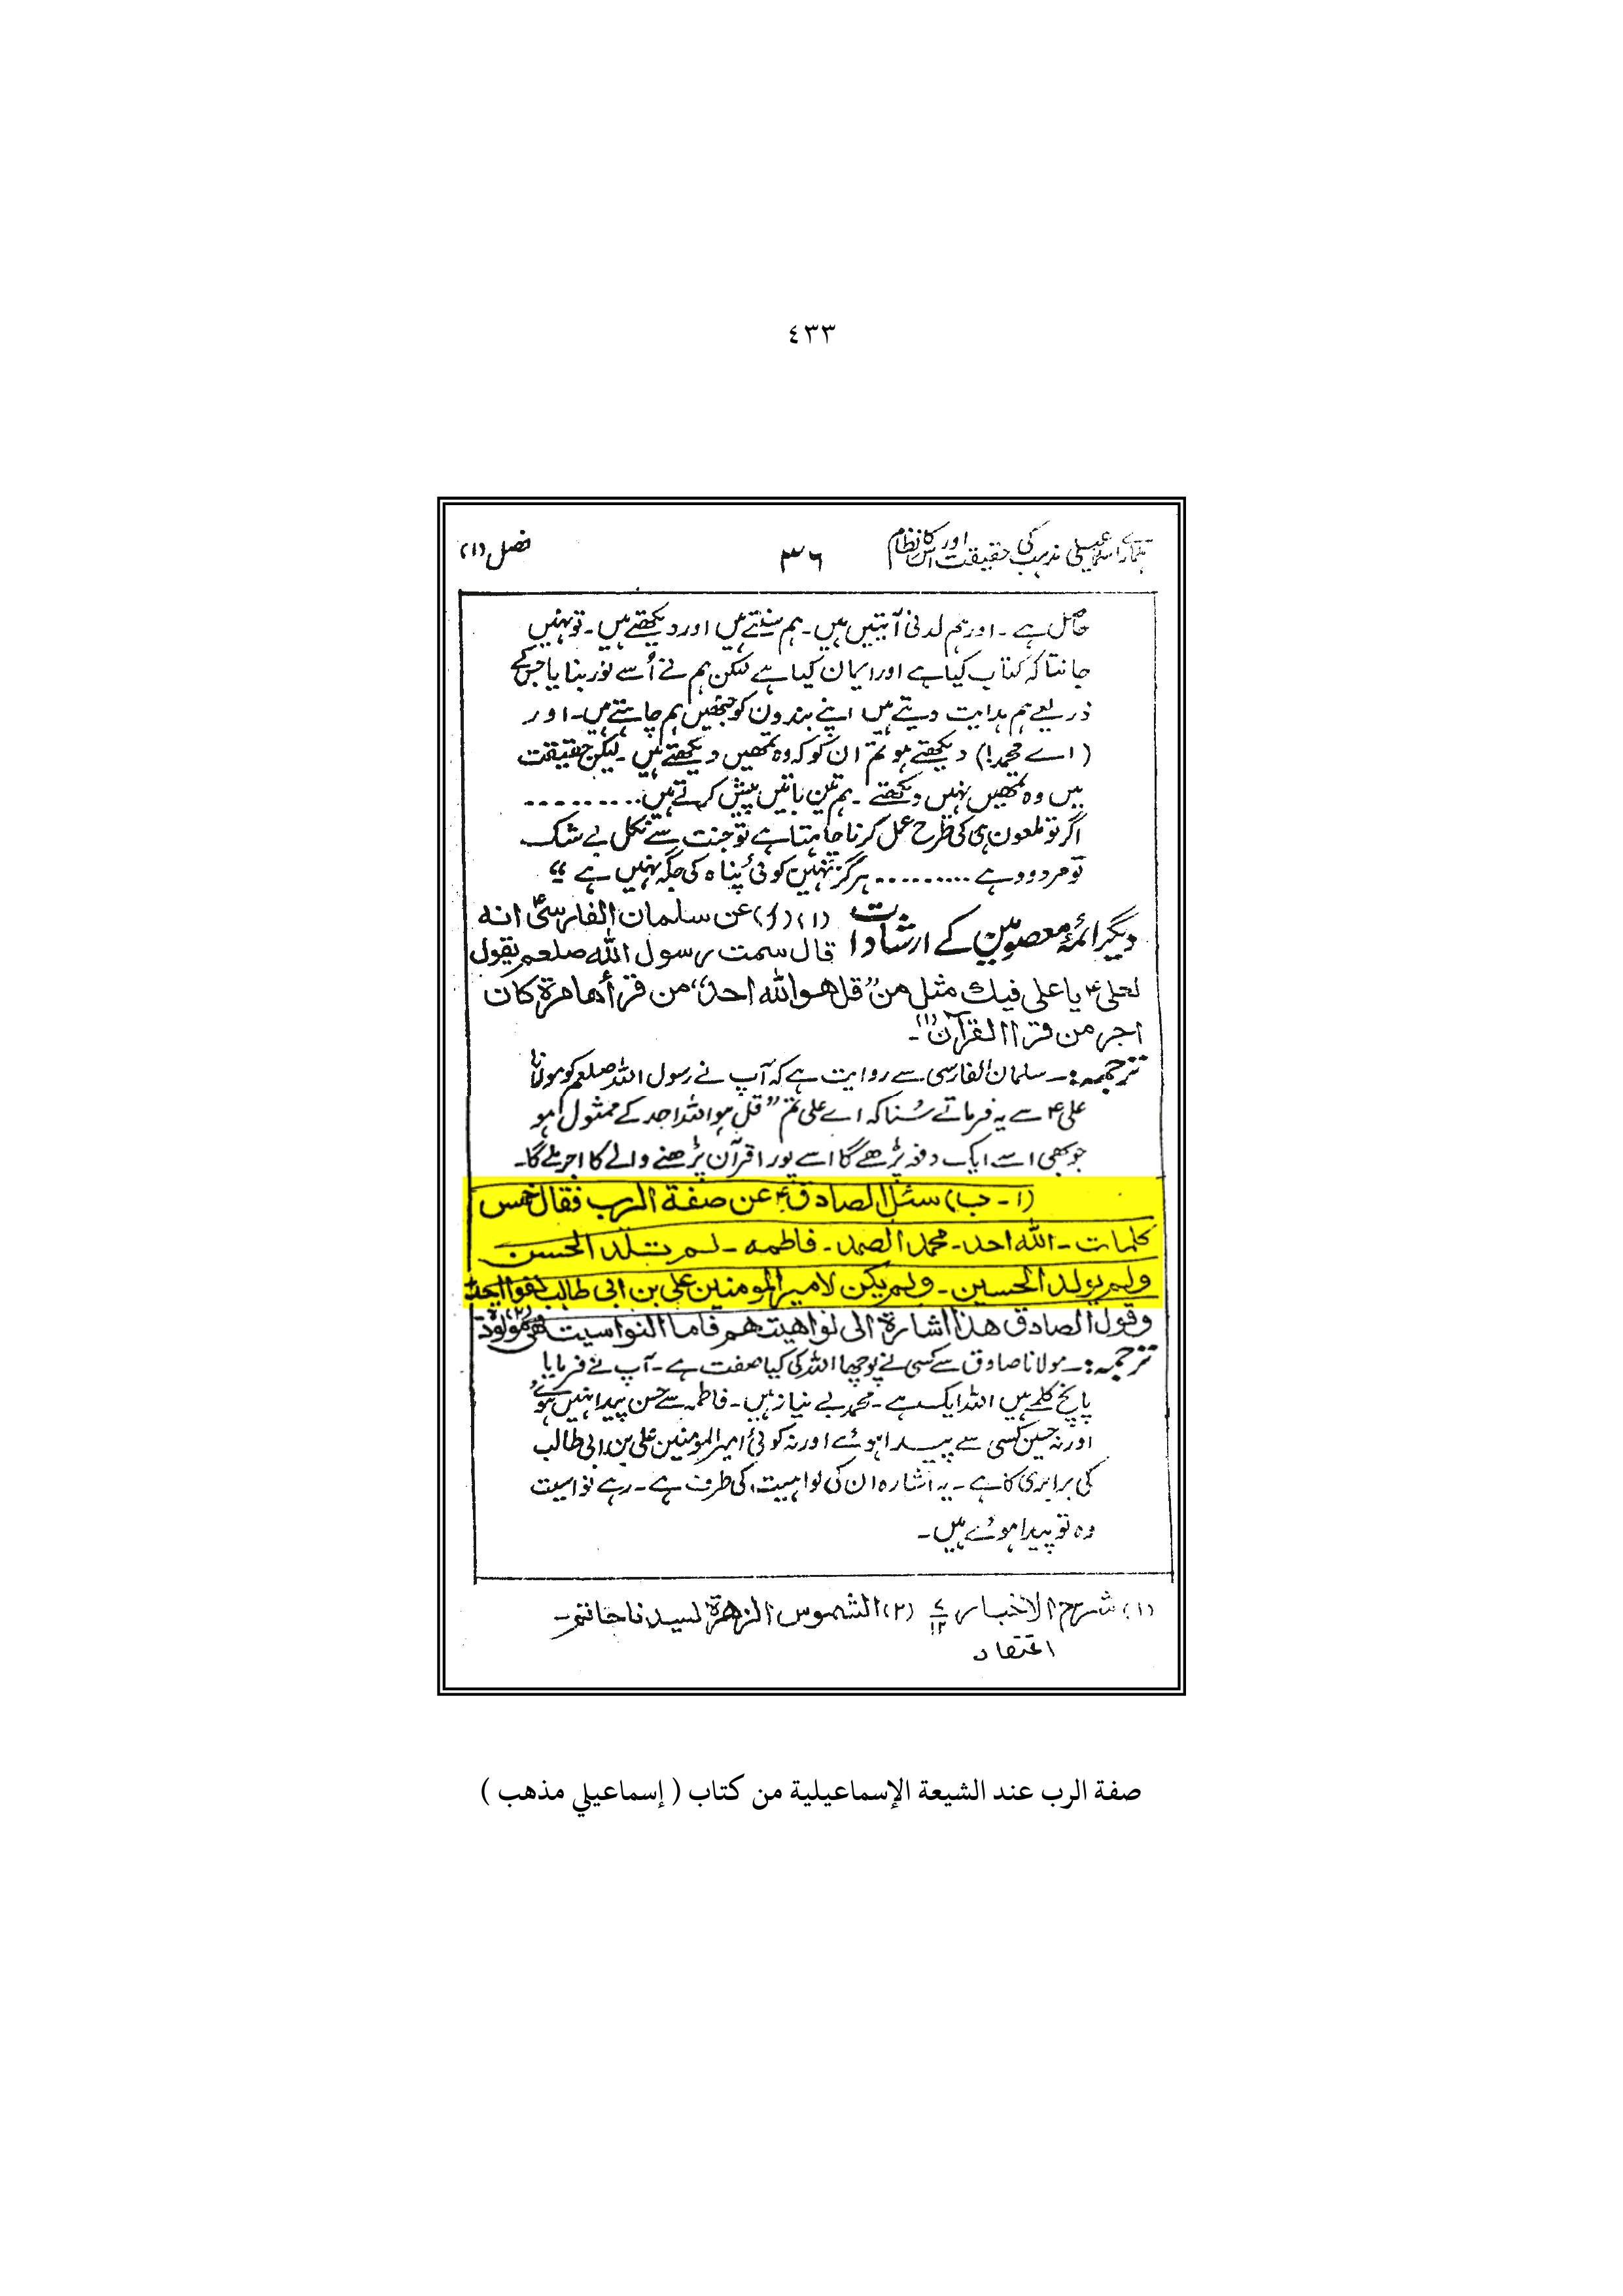 ٤٣٣
ہمارے اسماعیلی مذہب کی حقیقت اور اس کا نظام ٣٦ فصل (١)
حاصل ہے ۔ اور ہم لدنی آیتیں ہیں ۔ ہم سنتے ہیں اور دیکھتے ہیں ۔ تو نہیں
جانتا کہ کتاب کیا ہے اور ایمان کیا ہے لیکن ہم نے اُسے نور بنایا جس کے
ذریعے ہم ہدایت دیتے ہیں اپنے بندوں کو جنھیں ہم چاہتے ہیں ۔ اور
(اے محمد!) دیکھتے ہو تم ان کو کہ وہ تمھیں دیکھتے ہیں ۔ لیکن حقیقت
میں وہ تمھیں نہیں دیکھتے ۔ ہم تین باتیں پیش کرتے ہیں .........
اگر تو ملعون ہی کی طرح عمل کرنا چاہتا ہے تو جنت سے نکل بے شک
تو مردود ہے ......... ہرگز تمہیں کوئی پناہ کی جگہ نہیں ہے “
دیگر ائمۂ معصومین کے ارشادات (١)(ا) عن سلمان الفارسی انہ
قال سمت رسول اللہ صلعم یقول
لعلی ع یا علی فیك مثل من ”قل ھو اللہ احد“، من قرأھا مرۃ کان
اجر من قرا القرآن (١) ۔
ترجمہ :۔ سلمان الفارسی سے روایت ہے کہ آپ نے رسول اللہ صلعم کو مولانا
علی ع سے یہ فرماتے سُنا کہ اے علی تم ”قل ہو اللہ احد کے ممثول ہو
جو بھی اسے ایک دفعہ پڑھے گا اسے پورا قرآن پڑھنے والے کا اجر ملے گا۔
(١ - ب) سئل الصادق ع عن صفۃ الرب فقال خمس
کلمات ۔ اللہ احد ۔ محمد الصمد ۔ فاطمہ ۔ لم تلد الحسن
ولم یولد الحسین ۔ ولم یکن لامیر المومنین علی بن ابی طالب کفوا احد
وقول الصادق ھذا اشارۃ الی نواھیتھم فاما النواسیت فھی مولودۃ (٢)
ترجمہ :۔ مولانا صادق سے کسی نے پوچھا اللہ کی کیا صفت ہے ۔ آپ نے فرمایا
پانچ کلمے ہیں اللہ ایک ہے ۔ محمد بے نیاز ہیں ۔ فاطمہ سے حسن پیدا نہیں ہوئے
اور نہ حسین کسی سے پیدا ہوئے اور نہ کوئی امیر المومنین علی بن ابی طالب
کی برابری کا ہے ۔ یہ اشارہ ان کی لواہیت، کی طرف ہے ۔ رہے نواسیت
وہ تو پیدا ہوئے ہیں ۔
(١) شرح الاخبار ٧/١٢ (٢) الشموس الزھرۃ لسیدنا حاتم ۔
اعتقاد
صفة الرب عند الشيعة الإسماعيلية من كتاب ( إسماعيلي مذهب )